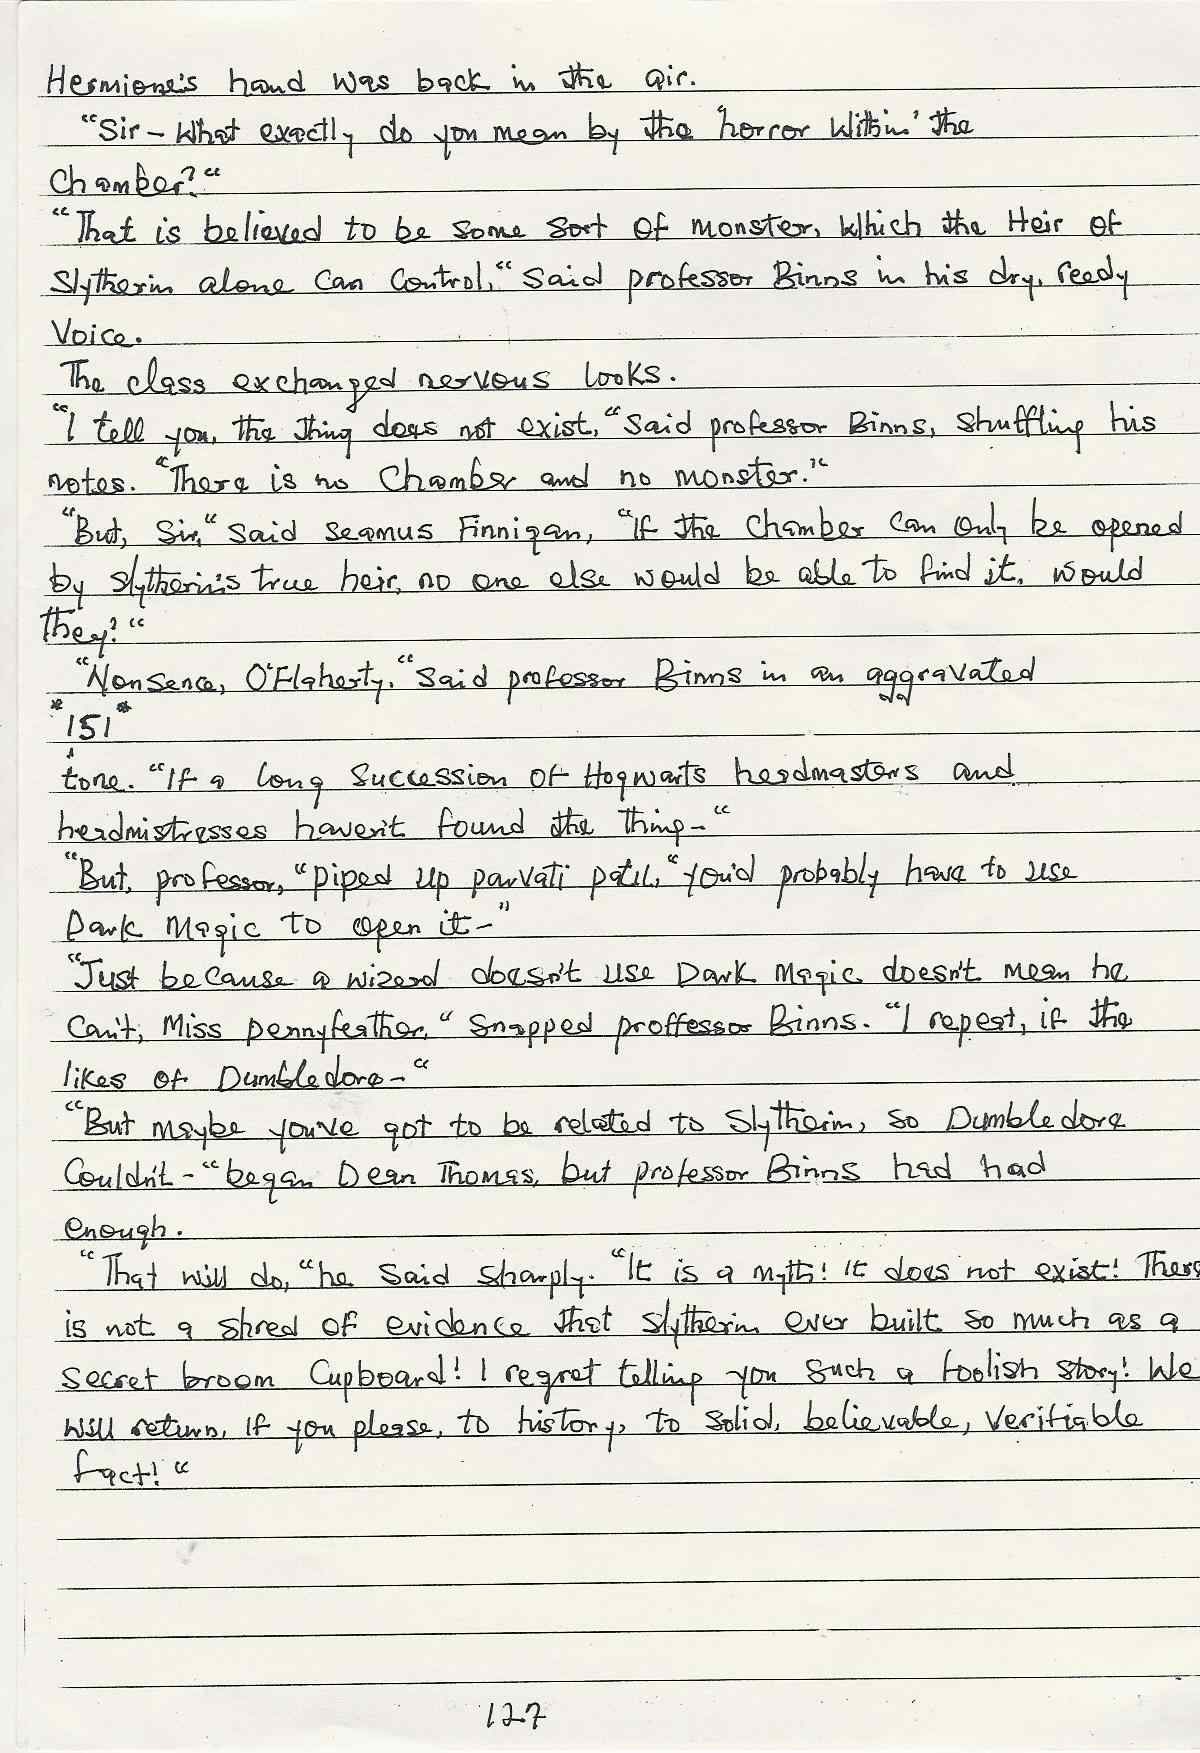 Hermione's hand was back in the air.
“Sir – What exactly do you mean by the ‘horror Within’ the
Chamber?“
“That is believed to be some sort of monster, Which the Heir of
Slytherin alone Can Control,“ Said professor Binns in his dry, reedy
Voice.
The class exchanged nervous looks.
“I tell you, the thing does not exist, “Said professor Binns, Shuffling his
notes. “There is no Chamber and no monster.“
“But, Sir,“ Said Seamus Finnigan, “If the Chamber Can Only be opened
by Slytherin's true heir, no one else would be able to find it, would
they?“
“Nonsence, O'Flaherty,“ Said professor Binns in an aggravated
*151*
tone. “If a long Succession of Hogwarts headmasters and
headmistresses haven't found the thing–“
“But, professor, “piped up parvati patil, “you'd probably have to use
Dark Magic to open it–”
“Just because a wizard doesn't use Dark Magic doesn't mean he
Can't, Miss pennyfeather,“ Snapped proffessor Binns. “I repeat, if the
likes of Dumbledore–“
“But maybe you've got to be related to Slytherin, so Dumbledore
Couldn't –“began Dean Thomas, but professor Binns had had
enough.
“That will do, “he Said Sharply. “It is a myth! It does not exist! There
is not a shred of evidence that Slytherin ever built so much as a
Secret broom Cupboard! I regret telling you Such a foolish story! We
Will return, If you please, to history, to Solid, believable, Verifiable
fact!“
127